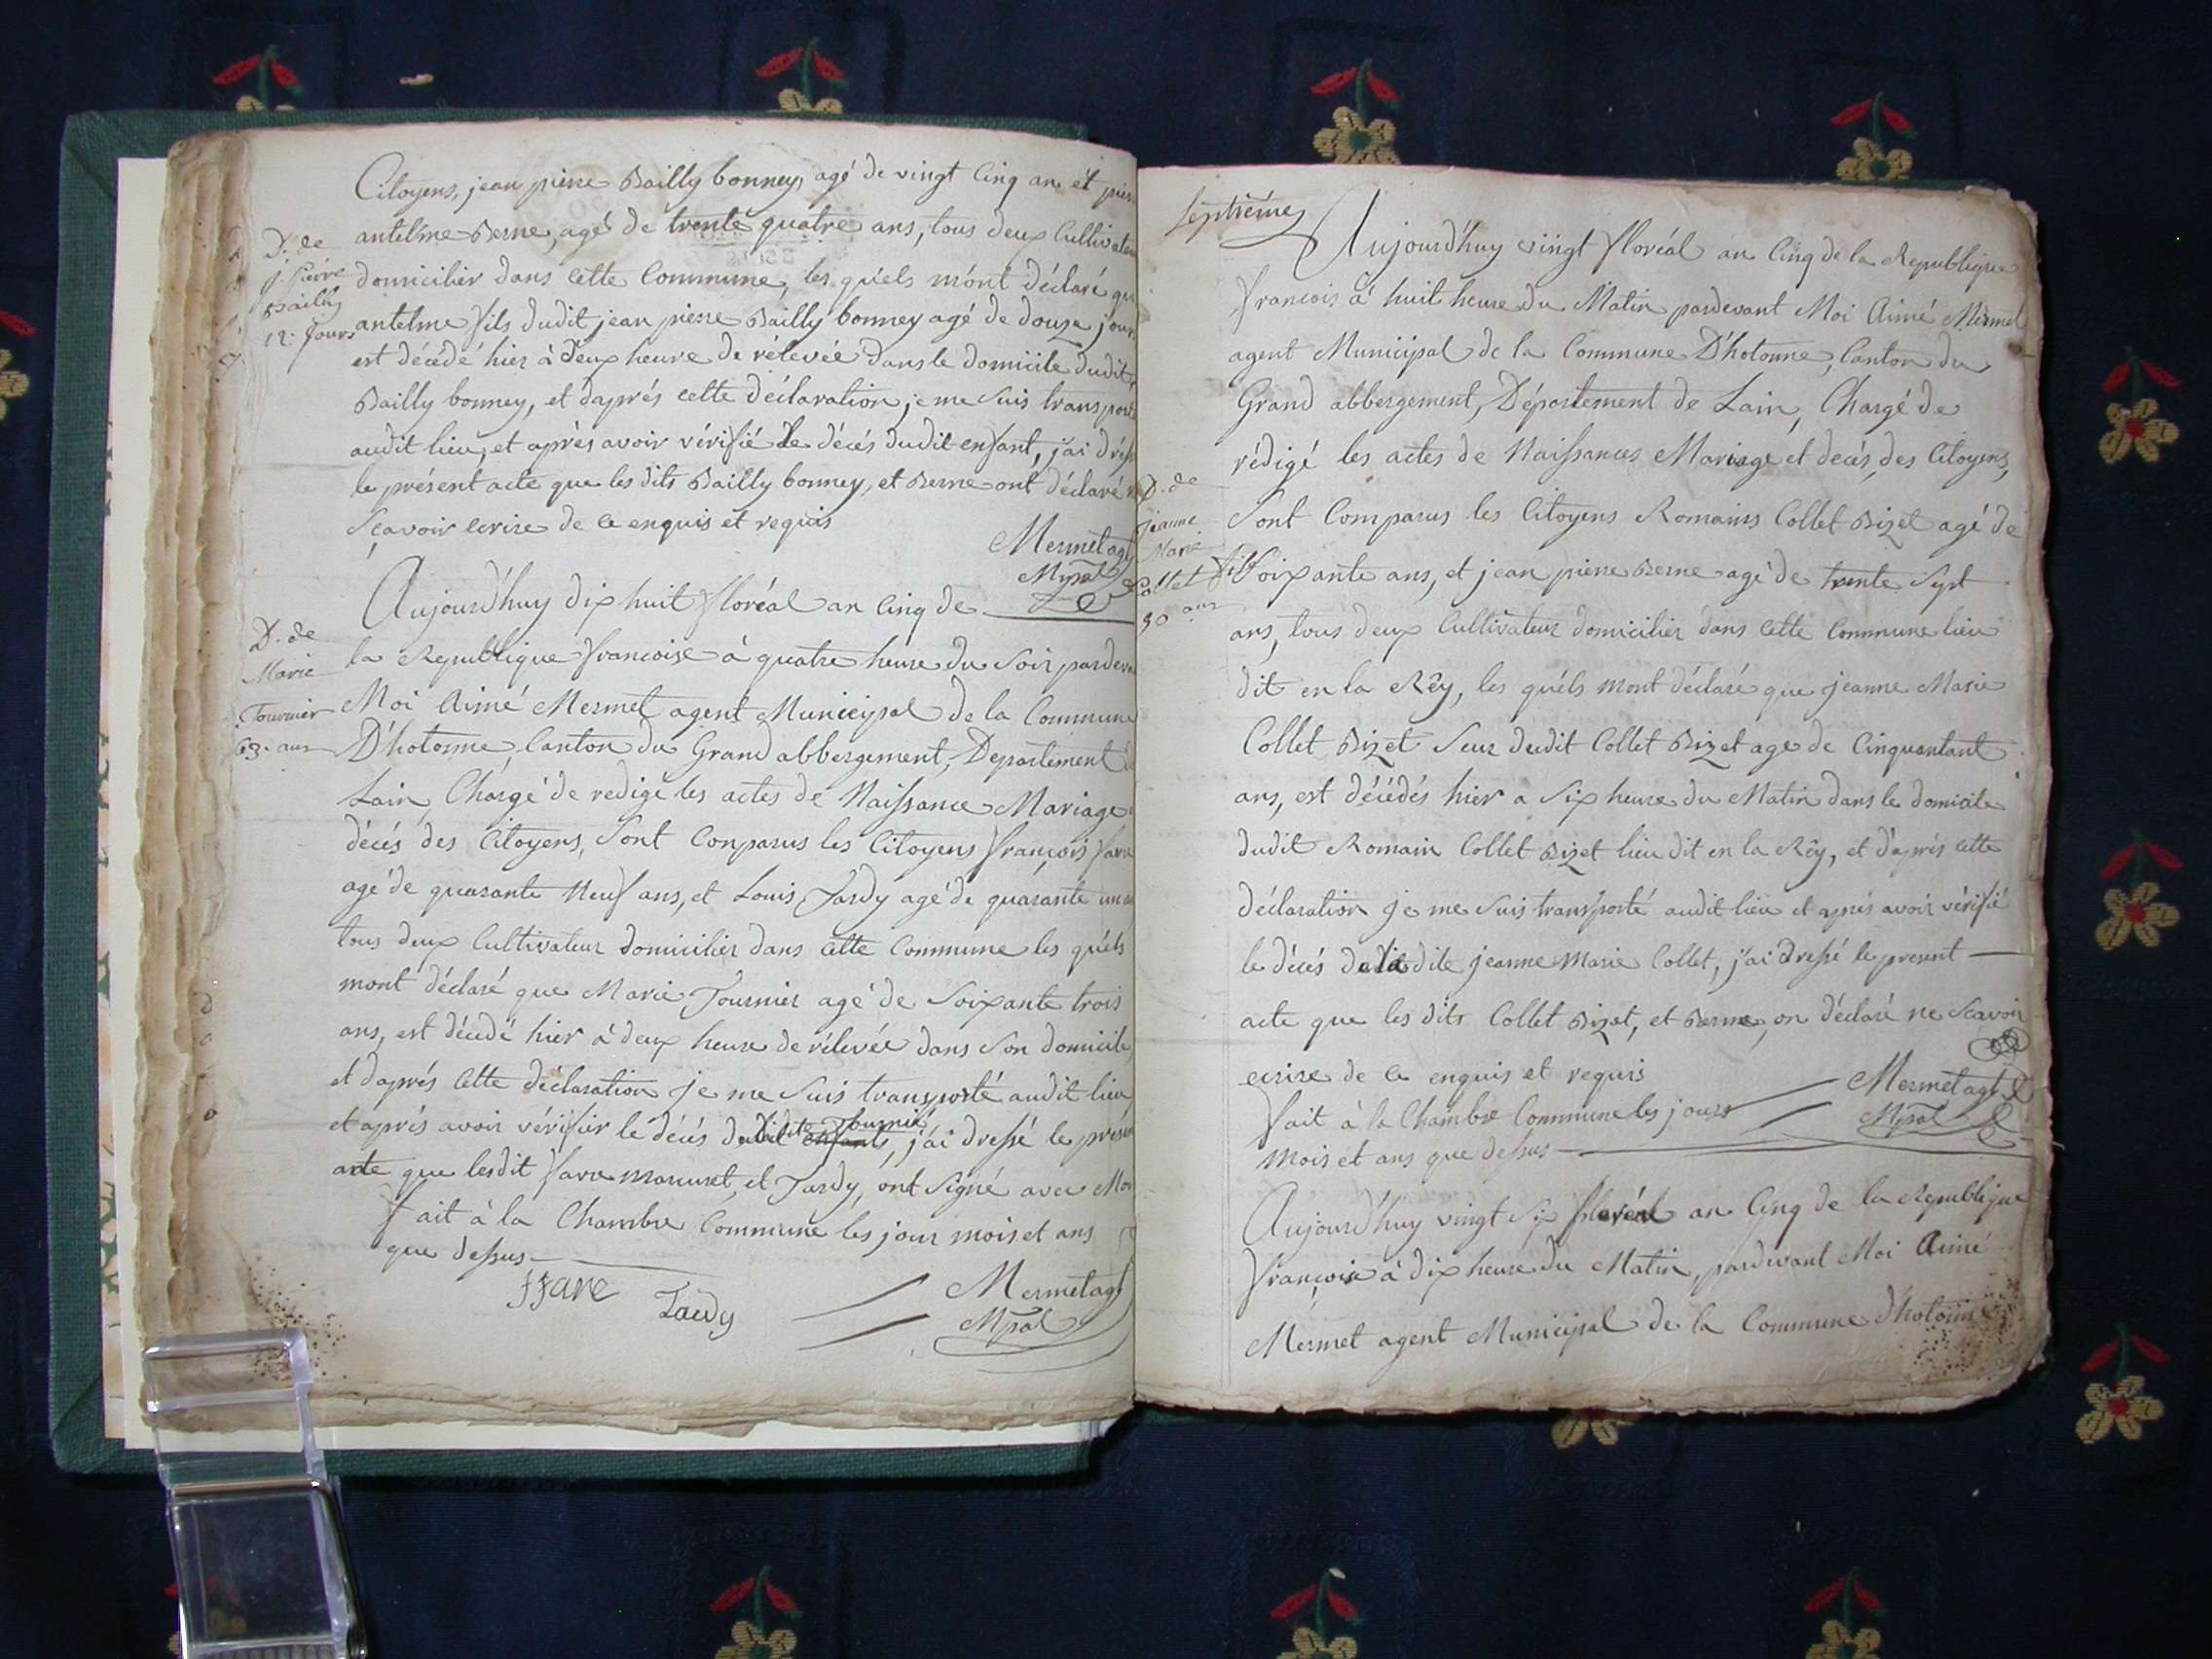 Citoyens, jean pierre Bailly bonney, agé de vingt Cinq ans et
antelme Berne, agé de trente quatre ans, tous deux
D. de
j. Pierre
Bailly
12. Jours
domicilier dans cette Commune, les quels m'ont déclaré
antelme fils dudit jean pierre Bailly bonney agé de douze
est décédé hier à deux heure de rélevée dans le domicile dudit
Bailly bonney, et daprés cette déclaration je me suis
audit lieu, et aprés avoir vérifié le décés dudit enfant, j'ai
le présent acte que les dits Bailly bonney, et Berne ont déclaré
Scavoir ecrire de ce enquis et requis
Mermet agt
Mpal
D. de
Marie
Tournier
63. ans
Aujourd'huy dix huit floréal an Cinq de
la Republique francoise à quatre heure du Soir
Moi Aimé Mermet agent Municipal de la Commune
D'hotonne, Canton du Grand abbergement, Departement
Lain, Chargé de redigé les actes de Naissance Mariage
décés des Citoyens, Sont Conparus les Citoyens françois
agé de quarante Neuf ans, et Louis Tardy agé de quarante un
tous deux Cultivateur domicilier dans cette Commune les quels
mont déclaré que Marie Tournier agé de Soixante trois
ans, est décedé hier à deux heure de rélevée dans Son domicile
et daprés cette déclaration je me Suis transporté audit lieu
et aprés avoir vérifier le décés de ladite Tournié, j'ai dressé le
acte que lesdit favre, et Tardy, ont Signé avec
fait à la Chambre Commune les jour mois et ans
que dessus
Tardy
Mermet agt
Mpal
Septiéme
Aujourd'huy vingt floréal an Cinq de la Republique
francois à huit heure du Matin pardevant Moi Aimé Mermet
agent Municipal de la Commune D'hotonne, Canton du
Grand abbergement, Département de Lain, Chargé de
rédigé les actes de Naissances Mariage et decés, des Citoyens,
D. de
jeanne
Marie
Collet
50 ans
Sont Comparus les Citoyens Romains Collet Bizet agé de
Soixante ans, et jean pierre Berne agé de trente Sept
ans, tous deux Cultivateur domicilier dans cette Commune lieu
dit en la Rêy, les quels mont déclaré que jeanne Marie
Collet Bizet Seur dudit Collet Bizet age de Cinquantant
ans, est décédés hier a Six heure du Matin dans le domicile
dudit Romain Collet Bizet lieu dit en la Rêy, et d'aprés cette
déclaration je me Suis transporté audit lieu et aprés avoir vérifié
le décés de la dite jeanne Marie Collet, j'ai dressé le present
acte que les dits Collet Bizet, et Berne, on déclaré ne Scavoir
ecrire de ce enquis et requis
fait à la Chambre Commune les jours
mois et ans que dessus
Mermet agt
Mpal
Aujourd'huy vingt Six floréal an Cinq de la Republique
françoise à dix heure du Matin, pardevant Moi Aimé
Mermet agent Municipal de la Commune d'hotonne